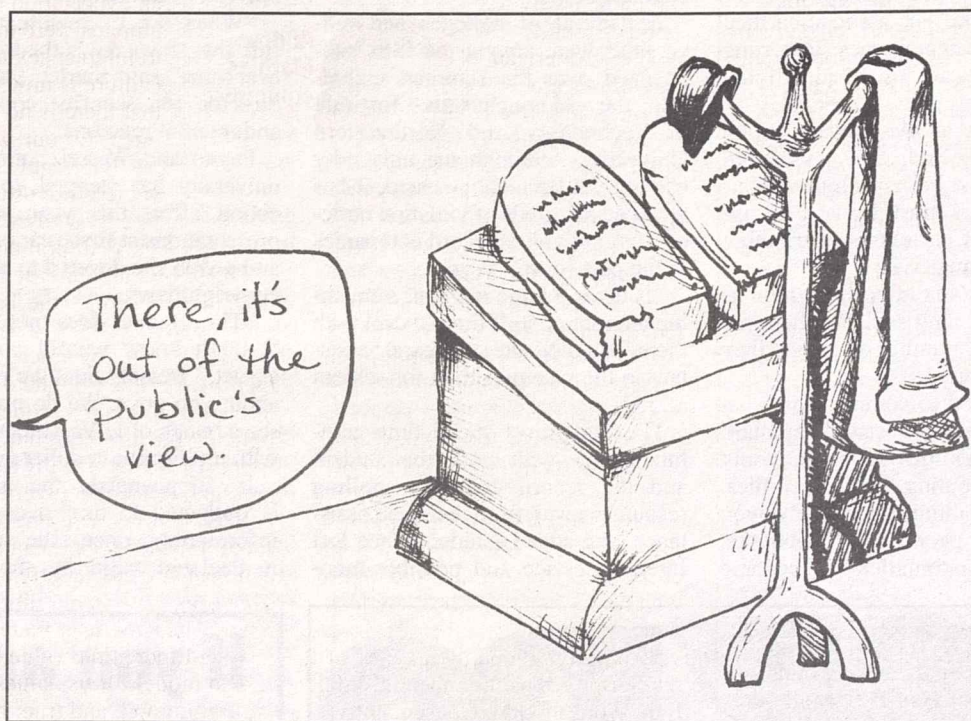 There, it's
out of the
public's
view.